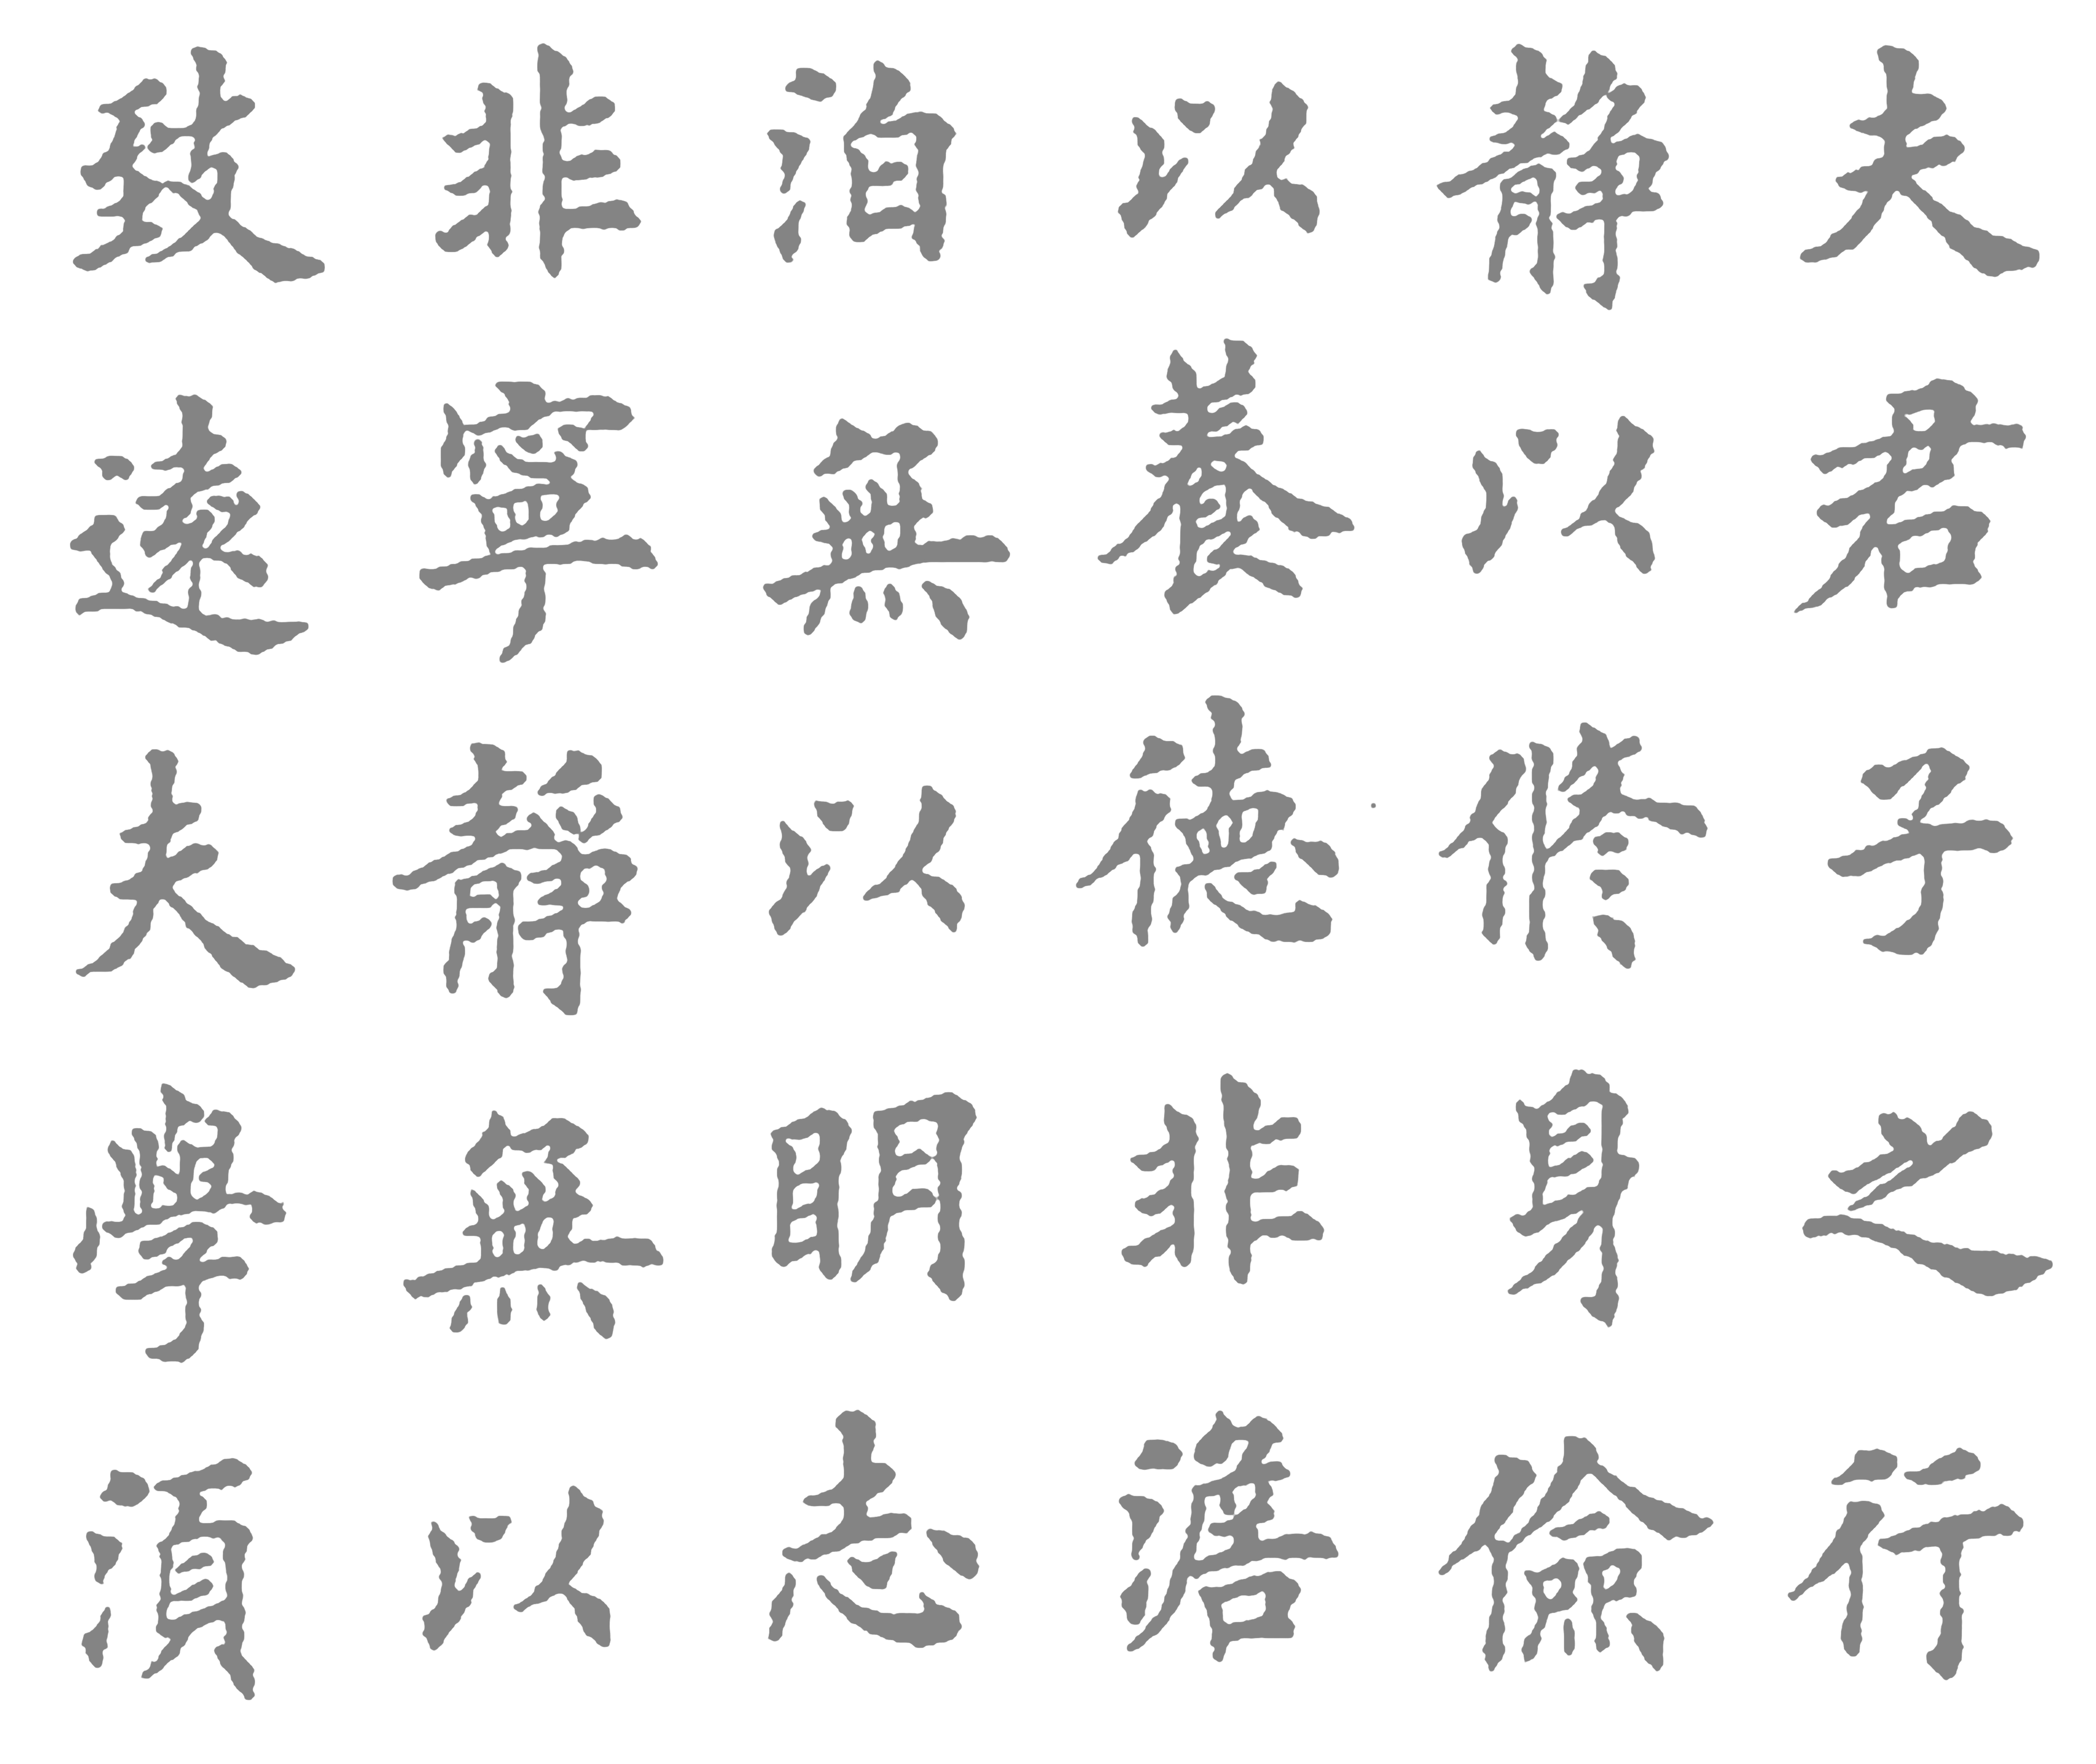 夫君子之行
靜以修身儉
以養德非澹
泊無以明志
非寧靜無以
致遠夫學須